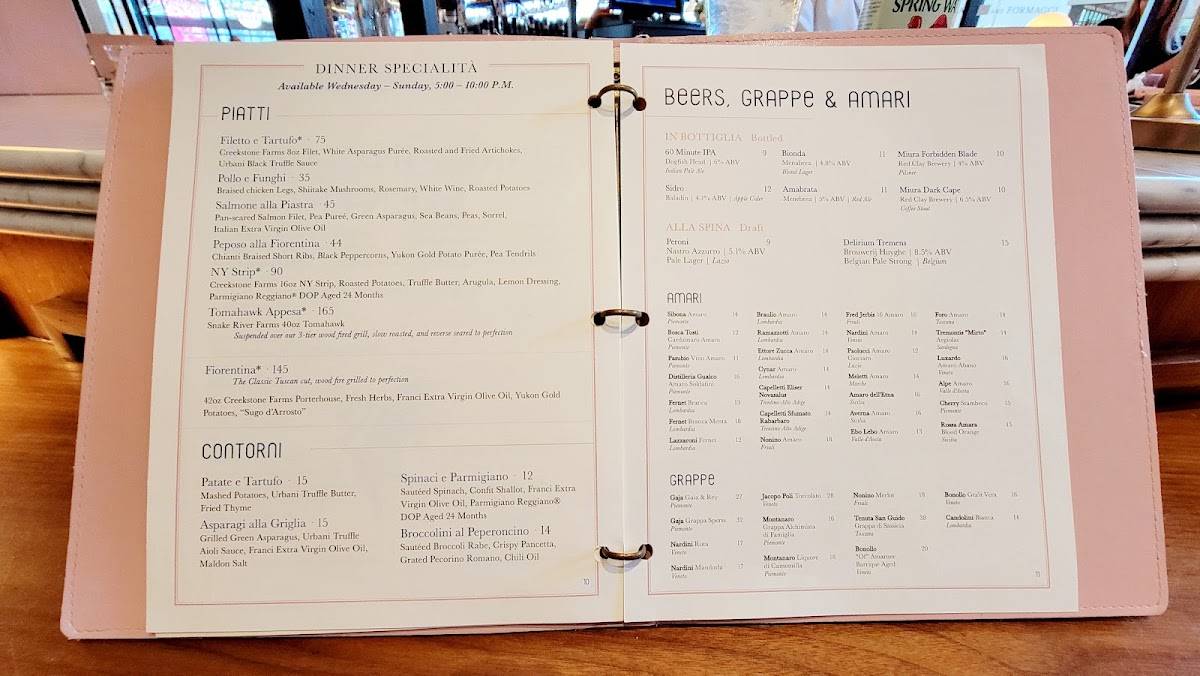 SPRING WA
FORMAGGI
DINNER SPECIALITÀ
Available Wednesday – Sunday, 5:00 – 10:00 P.M.
PIATTI
Filetto e Tartufo* · 75
Creekstone Farms 8oz Filet, White Asparagus Purée, Roasted and Fried Artichokes,
Urbani Black Truffle Sauce
Pollo e Funghi · 35
Braised chicken Legs, Shiitake Mushrooms, Rosemary, White Wine, Roasted Potatoes
Salmone alla Piastra · 45
Pan-seared Salmon Filet, Pea Pureé, Green Asparagus, Sea Beans, Peas, Sorrel,
Italian Extra Virgin Olive Oil
Peposo alla Fiorentina · 44
Chianti Braised Short Ribs, Black Peppercorns, Yukon Gold Potato Purée, Pea Tendrils
NY Strip* · 90
Creekstone Farms 16oz NY Strip, Roasted Potatoes, Truffle Butter, Arugula, Lemon Dressing,
Parmigiano Reggiano® DOP Aged 24 Months
Tomahawk Appesa* · 165
Snake River Farms 40oz Tomahawk
Suspended over our 3-tier wood fired grill, slow roasted, and reverse seared to perfection
Fiorentina* · 145
The Classic Tuscan cut, wood fire grilled to perfection
42oz Creekstone Farms Porterhouse, Fresh Herbs, Franci Extra Virgin Olive Oil, Yukon Gold
Potatoes, “Sugo d’Arrosto”
CONTORNI
Patate e Tartufo · 15
Mashed Potatoes, Urbani Truffle Butter,
Fried Thyme
Asparagi alla Griglia · 15
Grilled Green Asparagus, Urbani Truffle
Aioli Sauce, Franci Extra Virgin Olive Oil,
Maldon Salt
Spinaci e Parmigiano · 12
Sautéed Spinach, Confit Shallot, Franci Extra
Virgin Olive Oil, Parmigiano Reggiano®
DOP Aged 24 Months
Broccolini al Peperoncino · 14
Sautéed Broccoli Rabe, Crispy Pancetta,
Grated Pecorino Romano, Chili Oil
10
BEERS, GRAPPE & AMARI
IN BOTTIGLIA Bottled
60 Minute IPA 9
Dogfish Head | 6% ABV
Indian Pale Ale
Bionda 11
Menabrea | 4.8% ABV
Blond Lager
Miura Forbidden Blade 10
Red Clay Brewery | 4% ABV
Pilsner
Sidro 12
Baladin | 4.5% ABV | Apple Cider
Amabrata 11
Menabrea | 5% ABV | Red Ale
Miura Dark Cape 10
Red Clay Brewery | 6.5% ABV
Coffee Stout
ALLA SPINA Draft
Peroni 9
Nastro Azzurro | 5.1% ABV
Pale Lager | Lazio
Delirium Tremens 15
Brouwerij Huyghe | 8.5% ABV
Belgian Pale Strong | Belgium
AMARI
Sibona Amaro 14
Piemonte
Bosca Tosti 12
Cardamaro Amaro
Piemonte
Pasubio Vino Amaro 11
Piemonte
Distilleria Gualco
Amaro Soldatini
Piemonte
Fernet Branca
Lombardia
Fernet Branca Menta
Lombardia
Lazzaroni Fernet 12
Lombardia
Braulio Amaro 14
Lombardia
Ramazzotti Amaro 14
Lombardia
Ettore Zucca Amaro
Lombardia
Cynar Amaro 14
Lombardia
Capelletti Elisir 14
Novasalus
Trentino Alto Adige
Capelletti Sfumato 14
Rabarbaro
Trentino Alto Adige
Nonino Amaro
Friuli
Fred Jerbis 16 Amaro
Friuli
Nardini Amaro 14
Veneto
Paolucci Amaro 12
Ciociaro
Lazio
Meletti Amaro 14
Marche
Amaro dell'Etna
Sicilia
Averna Amaro
Sicilia
Ebo Lebo Amaro 13
Valle d'Aosta
Foro Amaro 14
Toscana
Tremontis "Mirto" 14
Argiolas
Sardegna
Luxardo 16
Amaro Abano
Veneto
Alpe Amaro
Valle d'Aosta
Cherry Stambecco 15
Piemonte
Rossa Amara 15
Blood Orange
Sicilia
GRAPPE
Gaja Gaia & Rey 27
Piemonte
Gaja Grappa Sperss
Piemonte
Nardini Ruta 17
Veneto
Nardini Mandorla 17
Veneto
Jacopo Poli Torcolato
Veneto
Montanaro
Grappa Alchimina
di Famiglia
Piemonte
Montanaro Liquore
di Camomilla
Piemonte
Nonino Merlot
Friuli
Tenuta San Guido
Grappa di Sassicaia
Toscana
Bonollo
"OF" Amarone
Barrique Aged
Veneto
Bonollo Grafit Vera
Veneto
Candolini Bianca 14
Lombardia
11